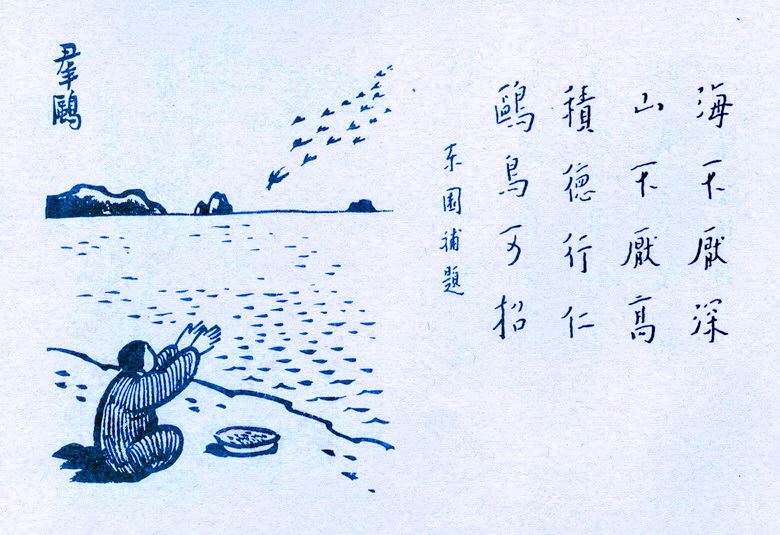 羣鷗
海不厭深
山不厭高
積德行仁
鷗鳥可招
东園補題